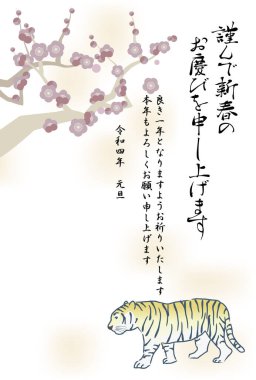 謹んで新春の
お慶びを申し上げます
良き一年となりますようお祈りいたします
本年もよろしくお願い申し上げます
令和四年 元旦